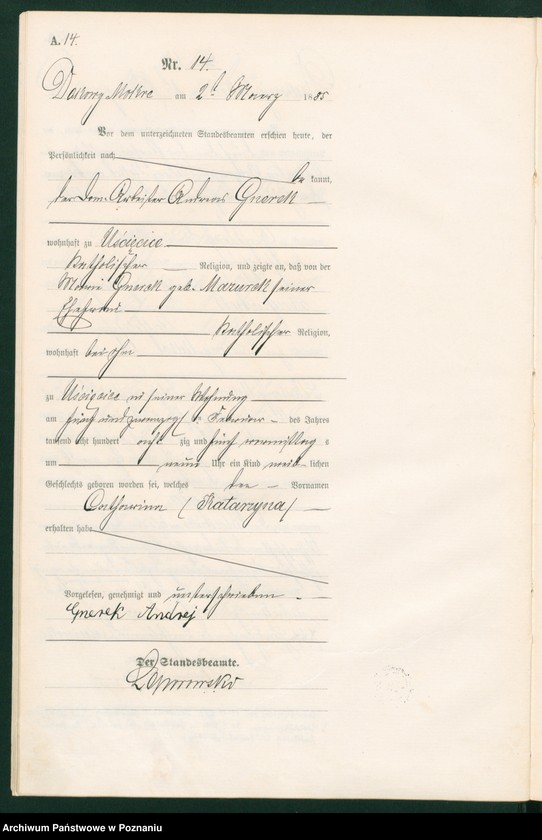 A. 14.
Nr. 14.
am 2t Maerz 1885
Vor dem unterzeichneten Standesbeamten erschien heute, der
Persönlichkeit nach
be kannt,
der Dom. Arbeiter Andreas Gnerek
wohnhaft zu Uścięcice
katholischer Religion, und zeigte an, daß von der
Marie Gnerek geb. Mazurek seiner
Ehefrau
katholischer Religion,
wohnhaft bei ihm
zu Uścięcice in seiner Wohnung
am fünf und zwanzigsten Februar des Jahres
tausend acht hundert acht zig und fünf vormittag s
um neun Uhr ein Kind weib- lichen
Geschlechts geboren worden sei, welches den Vornamen
Catharina (Katarzyna)
erhalten habe
Vorgelesen, genehmigt und unterschrieben
Gnerek Andrej
Der Standesbeamte.
Archiwum Państwowe w Poznaniu